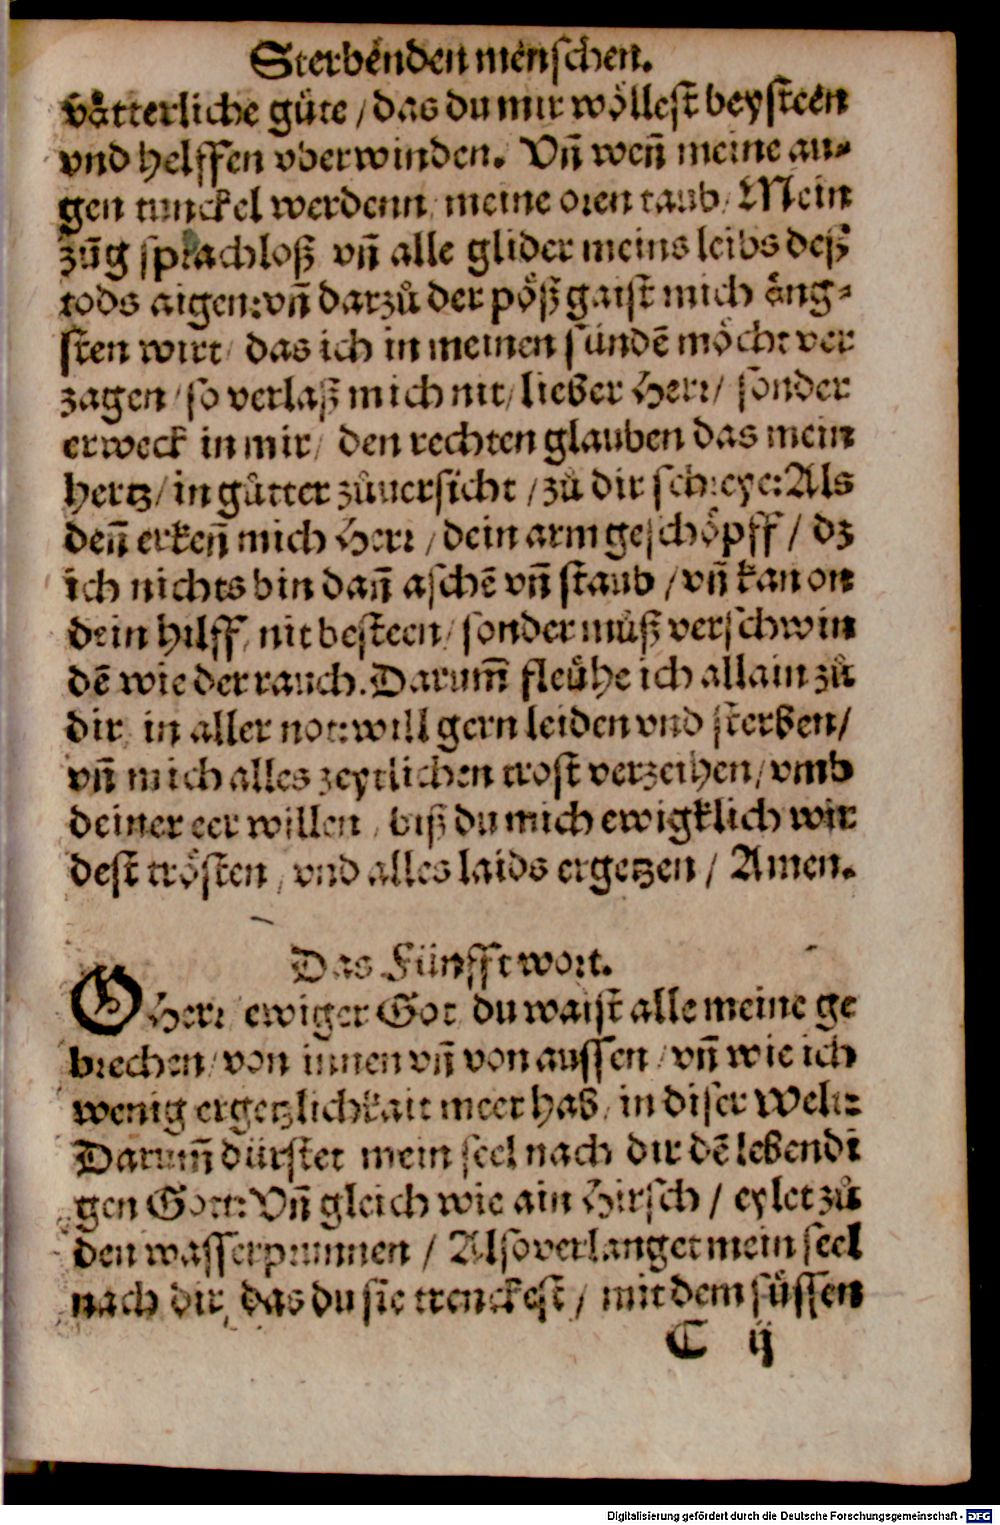 Sterbenden menschen.
våtterliche güte / das du mir wöllest beysteen
vnd helffen vberwinden. Vñ weñ meine au⸗
gen tunckel werdenn / meine oren taub / Mein
zũg sprachloß vñ alle glider meins leibs deß
tods aigen: vñ darzů der pöß gaist mich ång⸗
sten wirt / das ich in meinen sündẽ möcht ver
zagen / so verlaß mich nit / lieber Herr / sonder
erweck in mir / den rechten glauben das mein
hertz / in gůtter zůuersicht / zů dir schreye: Als
deñ erkeñ mich Herr / dein arm geschöpff / dz
ich nichts bin dañ aschẽ vñ staub / vñ kan on
dein hilff / nit besteen / sonder můß verschwin
dẽ wie der rauch. Darum̃ fleühe ich allain zů
dir / in aller not: will gern leiden vnd sterben /
vñ mich alles zeytlichen trost verzeihen / vmb
deiner eer willen / biß du mich ewigklich wir
dest trösten / vnd alles laids ergetzen / Amen.
Das Fünfft wort.
O Herr / ewiger Got / du waist alle meine ge
brechen / von innen vñ von aussen / vñ wie ich
wenig ergetzlichkait meer hab / in diser Welt:
Darum̃ dürstet mein seel nach dir dẽ lebendi
gen Gott: Vñ gleich wie ain Hirsch / eylet zů
den wasserprunnen / Also verlanget mein seel
nach dir / das du sie trenckest / mit dem süssen
C ij
Digitalisierung gefördert durch die Deutsche Forschungsgemeinschaft - DFG